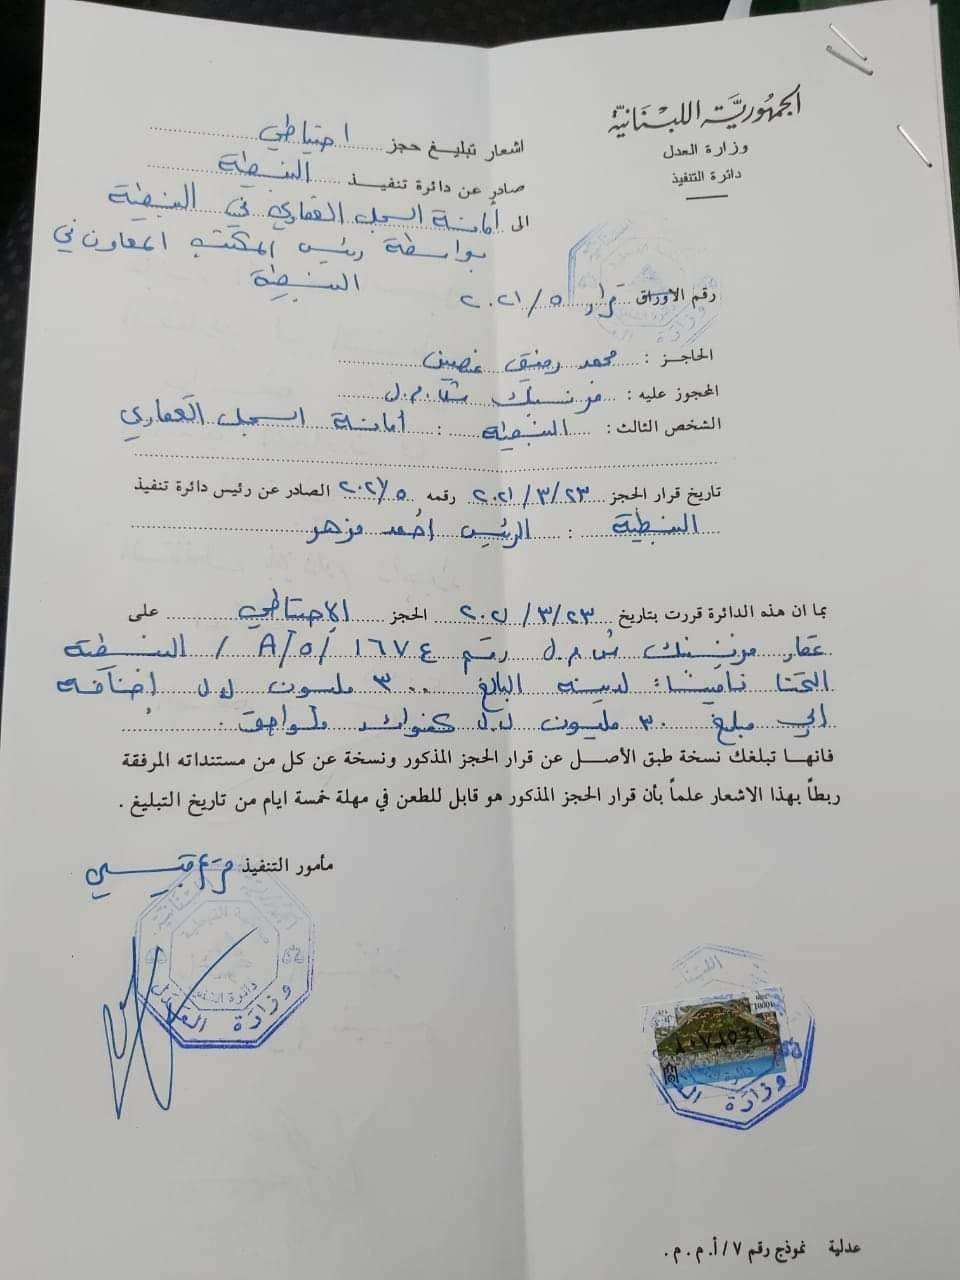 الجمهورية اللبنانية
وزارة العدل
دائرة التنفيذ
اشعار تبليغ حجز احتياطي
صادر عن دائرة تنفيذ النبطية
الى أمانة السجل العقاري في النبطية
بواسطة رئيس المكتب المعاون في
النبطية
رقم الاوراق قرار ٢٠٢١/٥
الحاجز : محمد رفيق غصين
المحجوز عليه : فرنسبنك ش.م.ل
الشخص الثالث : النبطية : أمانة السجل العقاري
تاريخ قرار الحجز ٢٠٢١/٣/٢٣ رقمه ٢٠٢١/٥ الصادر عن رئيس دائرة تنفيذ
النبطية : الرئيس احمد مزهر
بما ان هذه الدائرة قررت بتاريخ ٢٠٢١/٣/٢٣ الحجز الاحتياطي على
عقار فرنسبنك ش.م.ل رقم ١٦٧٤ /٥/A / النبطية
التحتا تأميناً لدينه البالغ ٣٠٠ مليون ل.ل إضافة
الى مبلغ ٣٠ مليون ل.ل كفوائد ولواحق .
فانها تبلغك نسخة طبق الأصل عن قرار الحجز المذكور ونسخة عن كل من مستنداته المرفقة
ربطاً بهذا الاشعار علماً بأن قرار الحجز المذكور هو قابل للطعن في مهلة خمسة ايام من تاريخ التبليغ .
مأمور التنفيذ
الجمهورية اللبنانية
دائرة التنفيذ
وزارة العدل
دائرة
وزارة
عدلية نموذج رقم ٧ / أ. م. م.